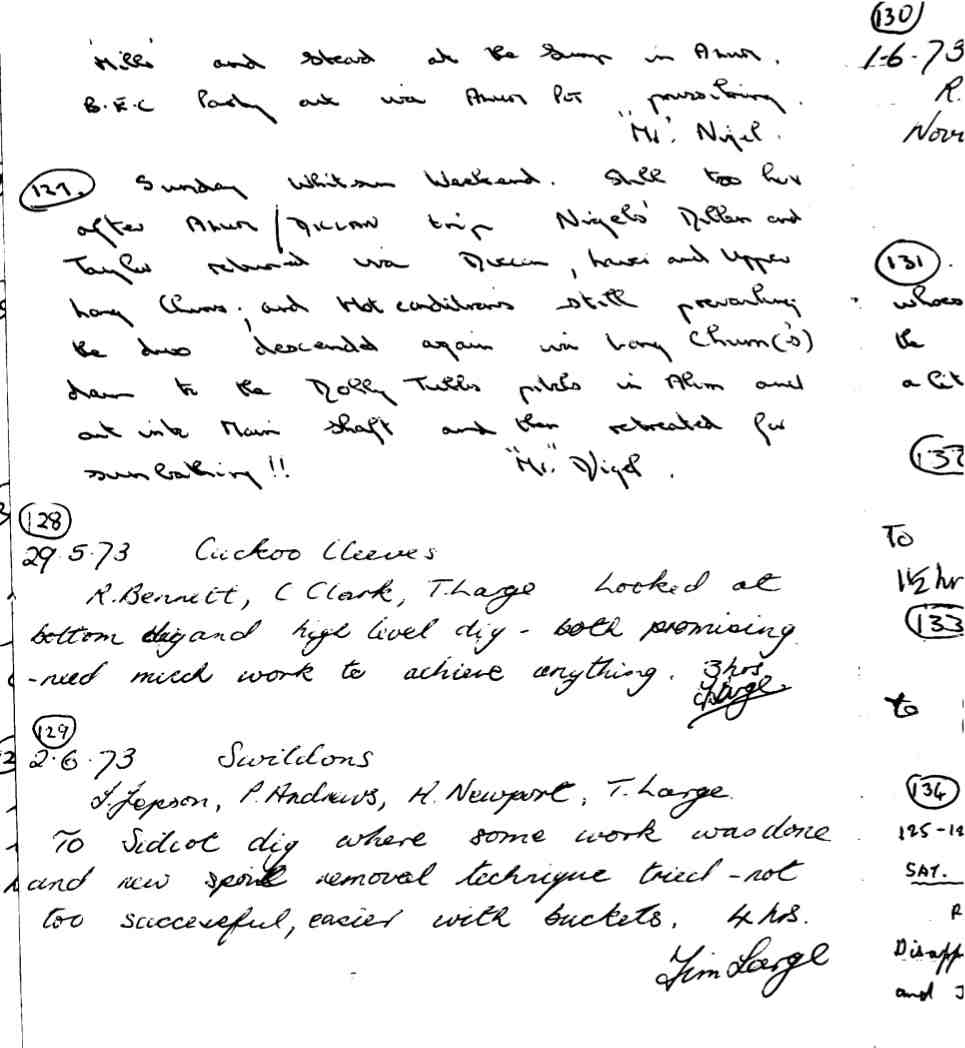 'Mills' and Stead at the Sump in Alum.
B.E.C Party out via Alum Pot
"Mr". Nigel.
127. Sunday Whitsun Weekend. Still too hot
after Alum/Diccan trip Nigels' and
Taylor returned via Diccan, and Upper
Long Churn; and Hot conditions still prevailing
the duo descended again via Long Churn(s)
down to the Dolly Tubbs pitch in Alum and
out into Main Shaft and then retreated for
sunbathing!!
"Mr." Nigel.
128
29.5.73 Cuckoo Cleeves
R. Bennett, C Clark, T. Large Looked at
bottom dig and high level dig - both promising
- need much work to achieve anything. 3 hrs.
129
2.6.73 Swildons
J. Jepson, P. Andrews, H. Newport, T. Large.
To Sidcot dig where some work was done
and new spoil removal technique tried - not
too successful, easier with buckets. 4 hrs.
Tim Large
130
1-6-73
R.
Nov
131.
the
a bit
132
To
1½ hr
133
to
134
125-12
SAT.
R
Disapp
and J